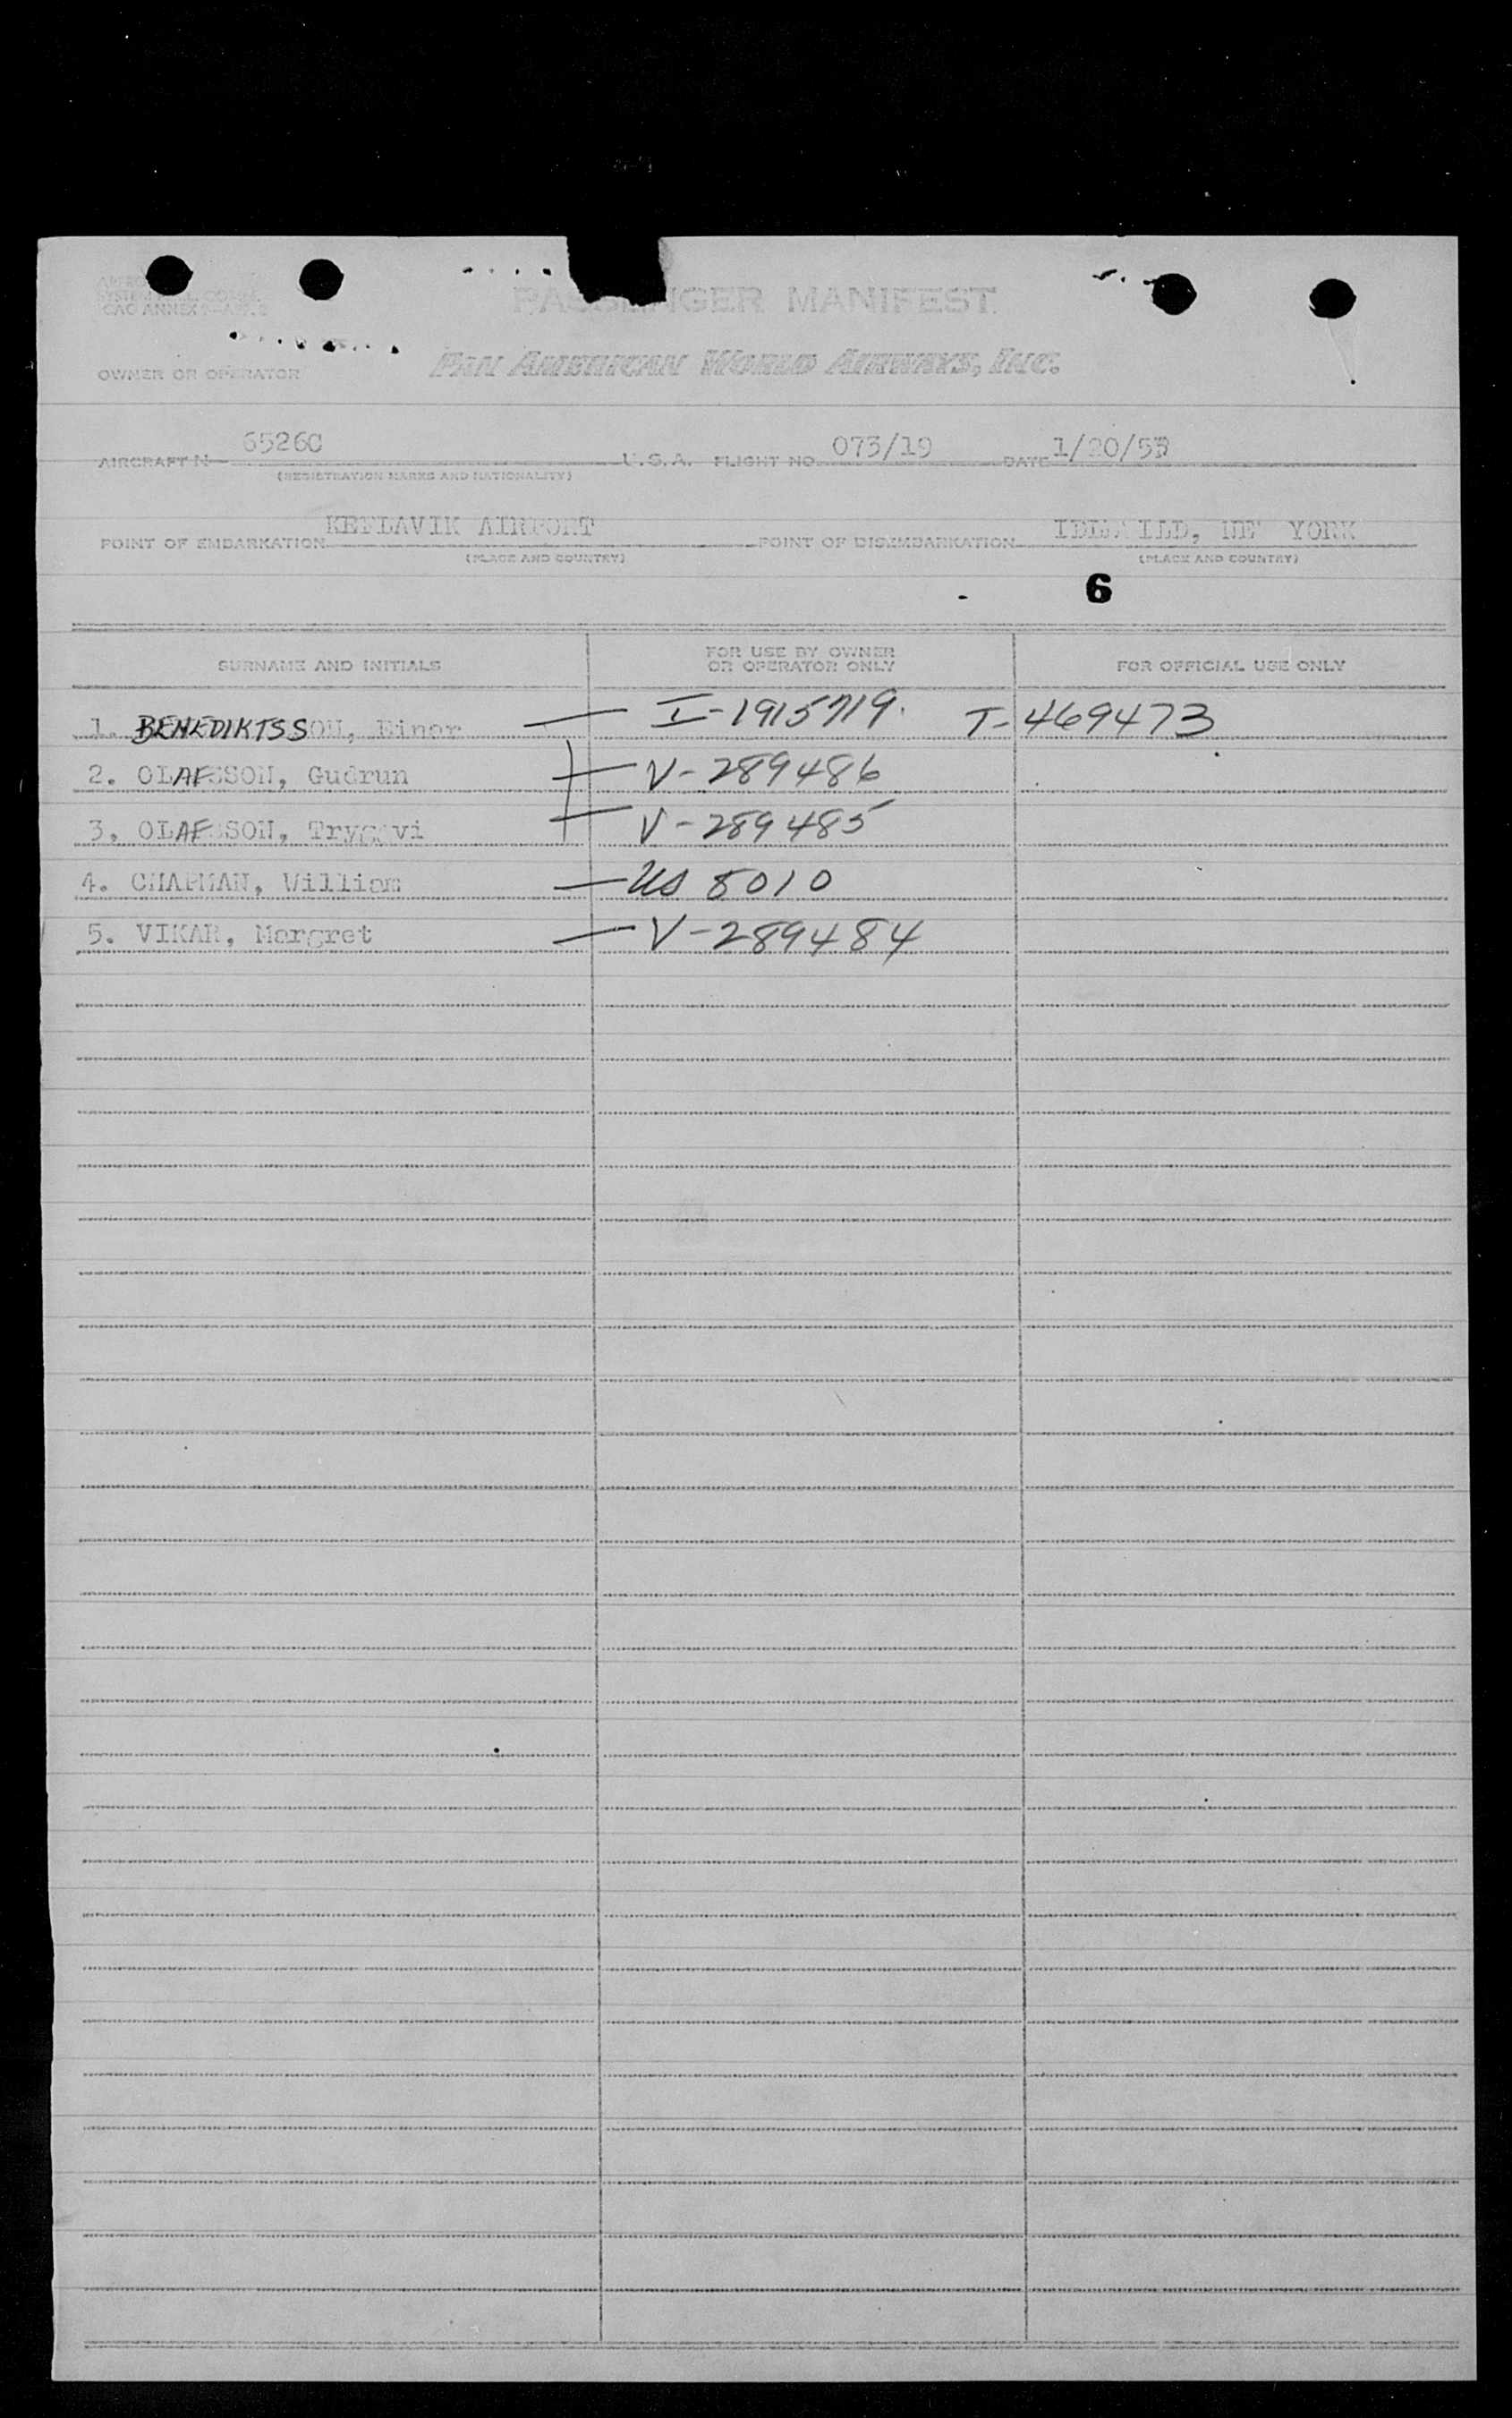 PASSENGER MANIFEST
CAO ANNEX
OWNER OR OPERATOR PAN AMERICAN WORLD AIRWAYS, INC.
AIRCRAFT N 6526C U.S.A. FLIGHT NO. 073/19 DATE
(REGISTRATION MARKS AND NATIONALITY)
POINT OF EMBARKATION KEFLAVIK AIRPORT POINT OF DISEMBARKATION IDLEWILD, NEW YORK
(PLACE AND COUNTRY) (PLACE AND COUNTRY)
6
SURNAME AND INITIALS FOR USE BY OWNER OR OPERATOR ONLY FOR OFFICIAL USE ONLY
1. BENEDIKTSSON, Einar — I-1915719. T-469473
2. OLAFSSON, Gudrun — V-289486
3. OLAFSSON, Tryggvi — V-289485
4. CHAPMAN, William — US 5010
5. VIKAR, Margret — V-289484